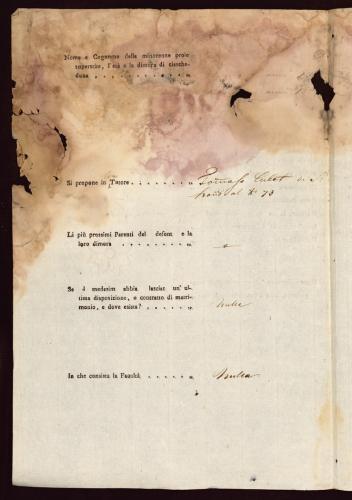 Nome e Cognome della minorenne prole
superstite, l'età e la dimora di ciasche-
duno . . . . . . . . . . „
Si propone in Tutore . . . . . . . „ Tomaso
al N° 73
Li più prossimi Parenti del defont. e la
loro dimora . . . . . . . . „
Se il medesim abbia lasciat un' ul-
tima disposizione, o contratto di matri-
monio, e dove esista? . . . . . . „ nulla
In che consista la Facoltà . . . . . „ Nulla